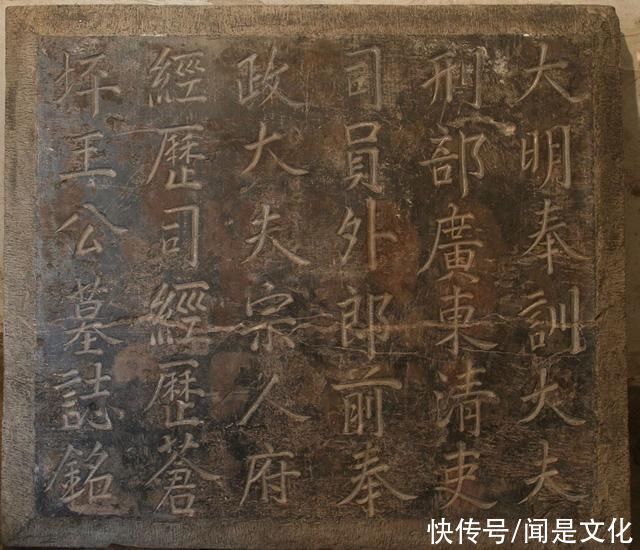 大明奉訓大夫
刑部廣東清吏
司員外郎前奉
政大夫宗人府
經歷司經歷蒼
坪王公墓誌銘
快传号/闻是文化